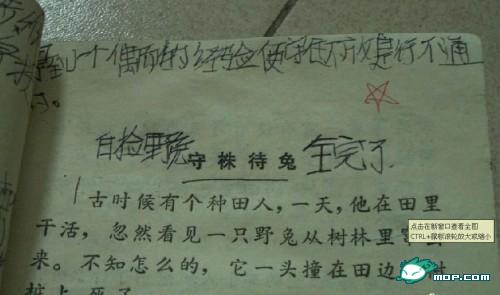 到一个偶而的经验便守住不放是行不通
的。
自捡野兔 守株待兔 全完了
古时候有个种田人，一天，他在田里
干活，忽然看见一只野兔从树林里
来。不知怎么的，它一头撞在田边
桩上 死了
点击在新窗口查看全图
CTRL+鼠标滚轮放大或缩小
MOP.com